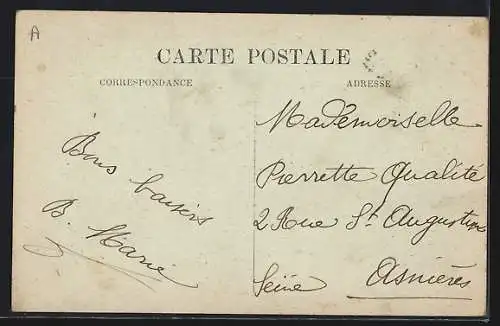 A
CARTE POSTALE
CORRESPONDANCE
ADRESSE
Bons baisers
B. Marie
Mademoiselle
Pierrette Qualité
2 Rue St Augustin
Asnières
Seine